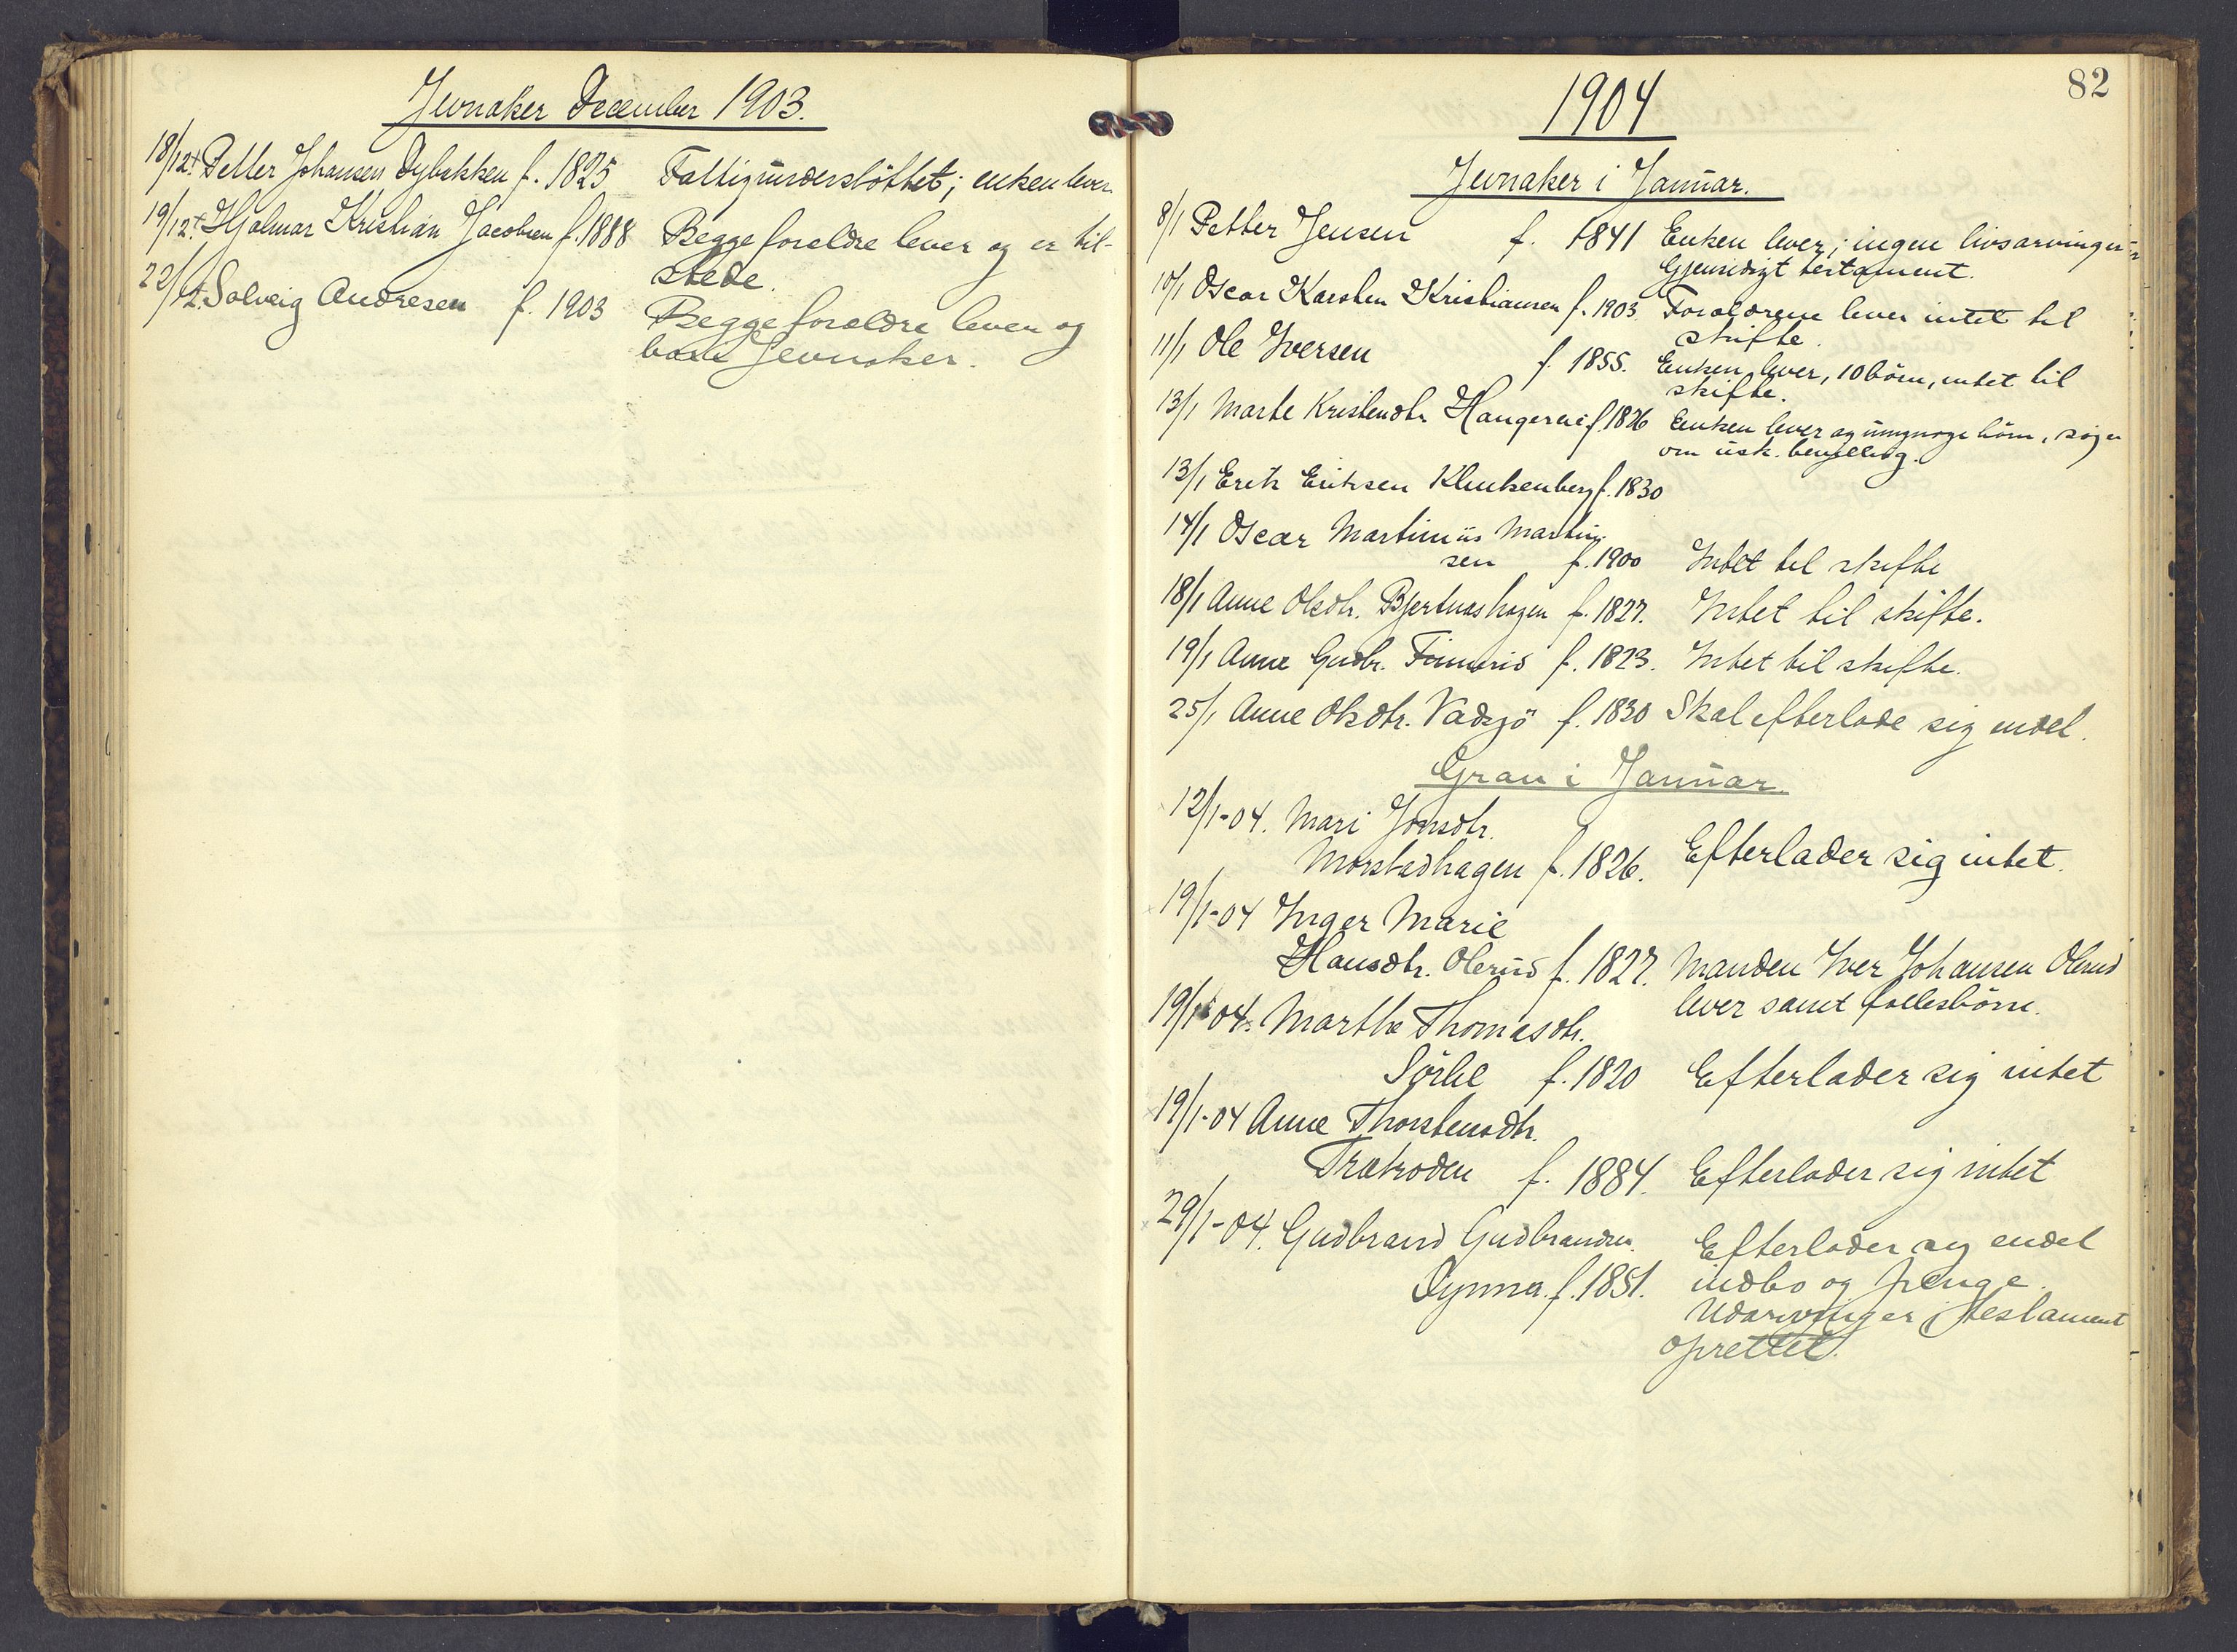 Jevnaker December 1903.
18/12. Petter Johansen Dybakken f. 1825 Fattigunderstöttet; enken lever.
19/12. Hjalmar Kristian Jacobsen f. 1888 Begge foreldre lever og er til-
stede.
22/12. Solveig Andresen f. 1903 Begge foreldre lever og
Jevnaker.
82
1904
Jevnaker i Januar.
8/1 Petter Jensen f. 1841 Enken lever; ingen livsarvinger
Gjensidigt testament.
10/1 Oscar Karsten Kristiansen f. 1903. Forældrene lever intet til
skifte.
11/1 Ole Iversen f. 1855. Enken lever, 10 börn, intet til
skifte.
13/1 Marte Kristendtr. f. 1826 Enken lever og börn, søger
om usk. bevilling.
13/1 Erik Eriksen Klinkenberg f. 1830
14/1 Oscar Martinius Martin
sen f. 1900 Intet til skifte
18/1 Anne Olsdtr. Bjertneshagen f. 1827. Intet til skifte.
19/1 Anne Gudbr. f. 1823. Intet til skifte.
25/1 Anne Olsdtr. Vadsjö f. 1830 Skal efterlade sig endel.
Gran i Januar.
12/1-04. Mari Jonsdtr.
Morstadhagen f. 1826. Efterlader sig intet.
19/1-04 Inger Marie
Hansdtr. Olerud f. 1827. Manden Iver Johansen Olerud
lever samt fællesbörn.
19/1-04. Marthe Thomasdtr.
Sörlie f. 1820 Efterlader sig intet
19/1-04 Anne Thorstensdtr.
f. 1884. Efterlader sig intet
29/1-04. Gudbrand Gudbrandsen
Dynna. f. 1851. Efterlader sig endel
indbo og penge.
Udarvinger; testament
oprettet.